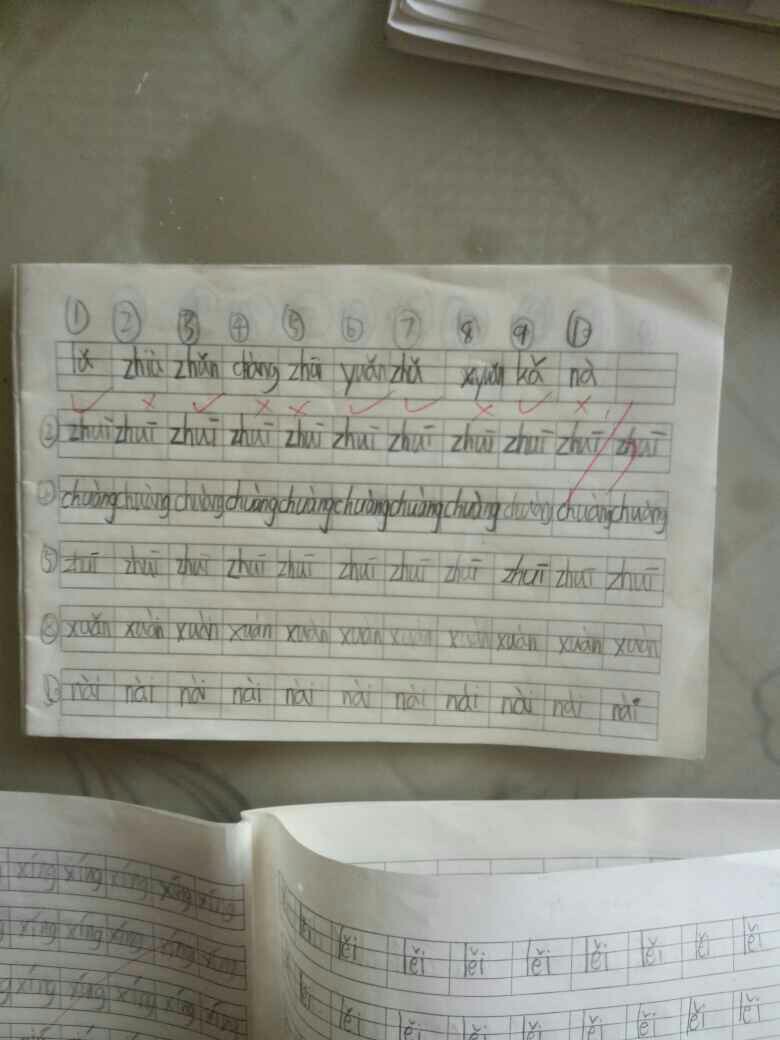 ① ② ③ ④ ⑤ ⑥ ⑦ ⑧ ⑨ ⑩
lǎ zhǎn zhāi yuǎn zhǎ kǎ nà
② zhuī zhuī zhuī zhuī zhuī zhuī zhuī zhuī zhuī zhuī zhuī
chuàng chuàng chuàng chuàng chuàng chuàng chuàng chuàng chuàng chuàng chuàng
⑤ zhuī zhuī zhuī zhuī zhuī zhuī zhuī zhuī zhuī zhuī zhuī
⑧ xuǎn xuàn xuàn xuán xuàn xuàn xuàn xuàn xuàn xuàn xuàn
nài nài nài nài nài nài nài nài nài nài nài
xíng xíng xíng xíng xíng
xíng xíng xíng xíng xíng
xíng xíng xíng xíng xíng
lěi lěi lěi lěi lěi lěi lěi lěi
lěi lěi lěi lěi lěi lěi lěi lěi